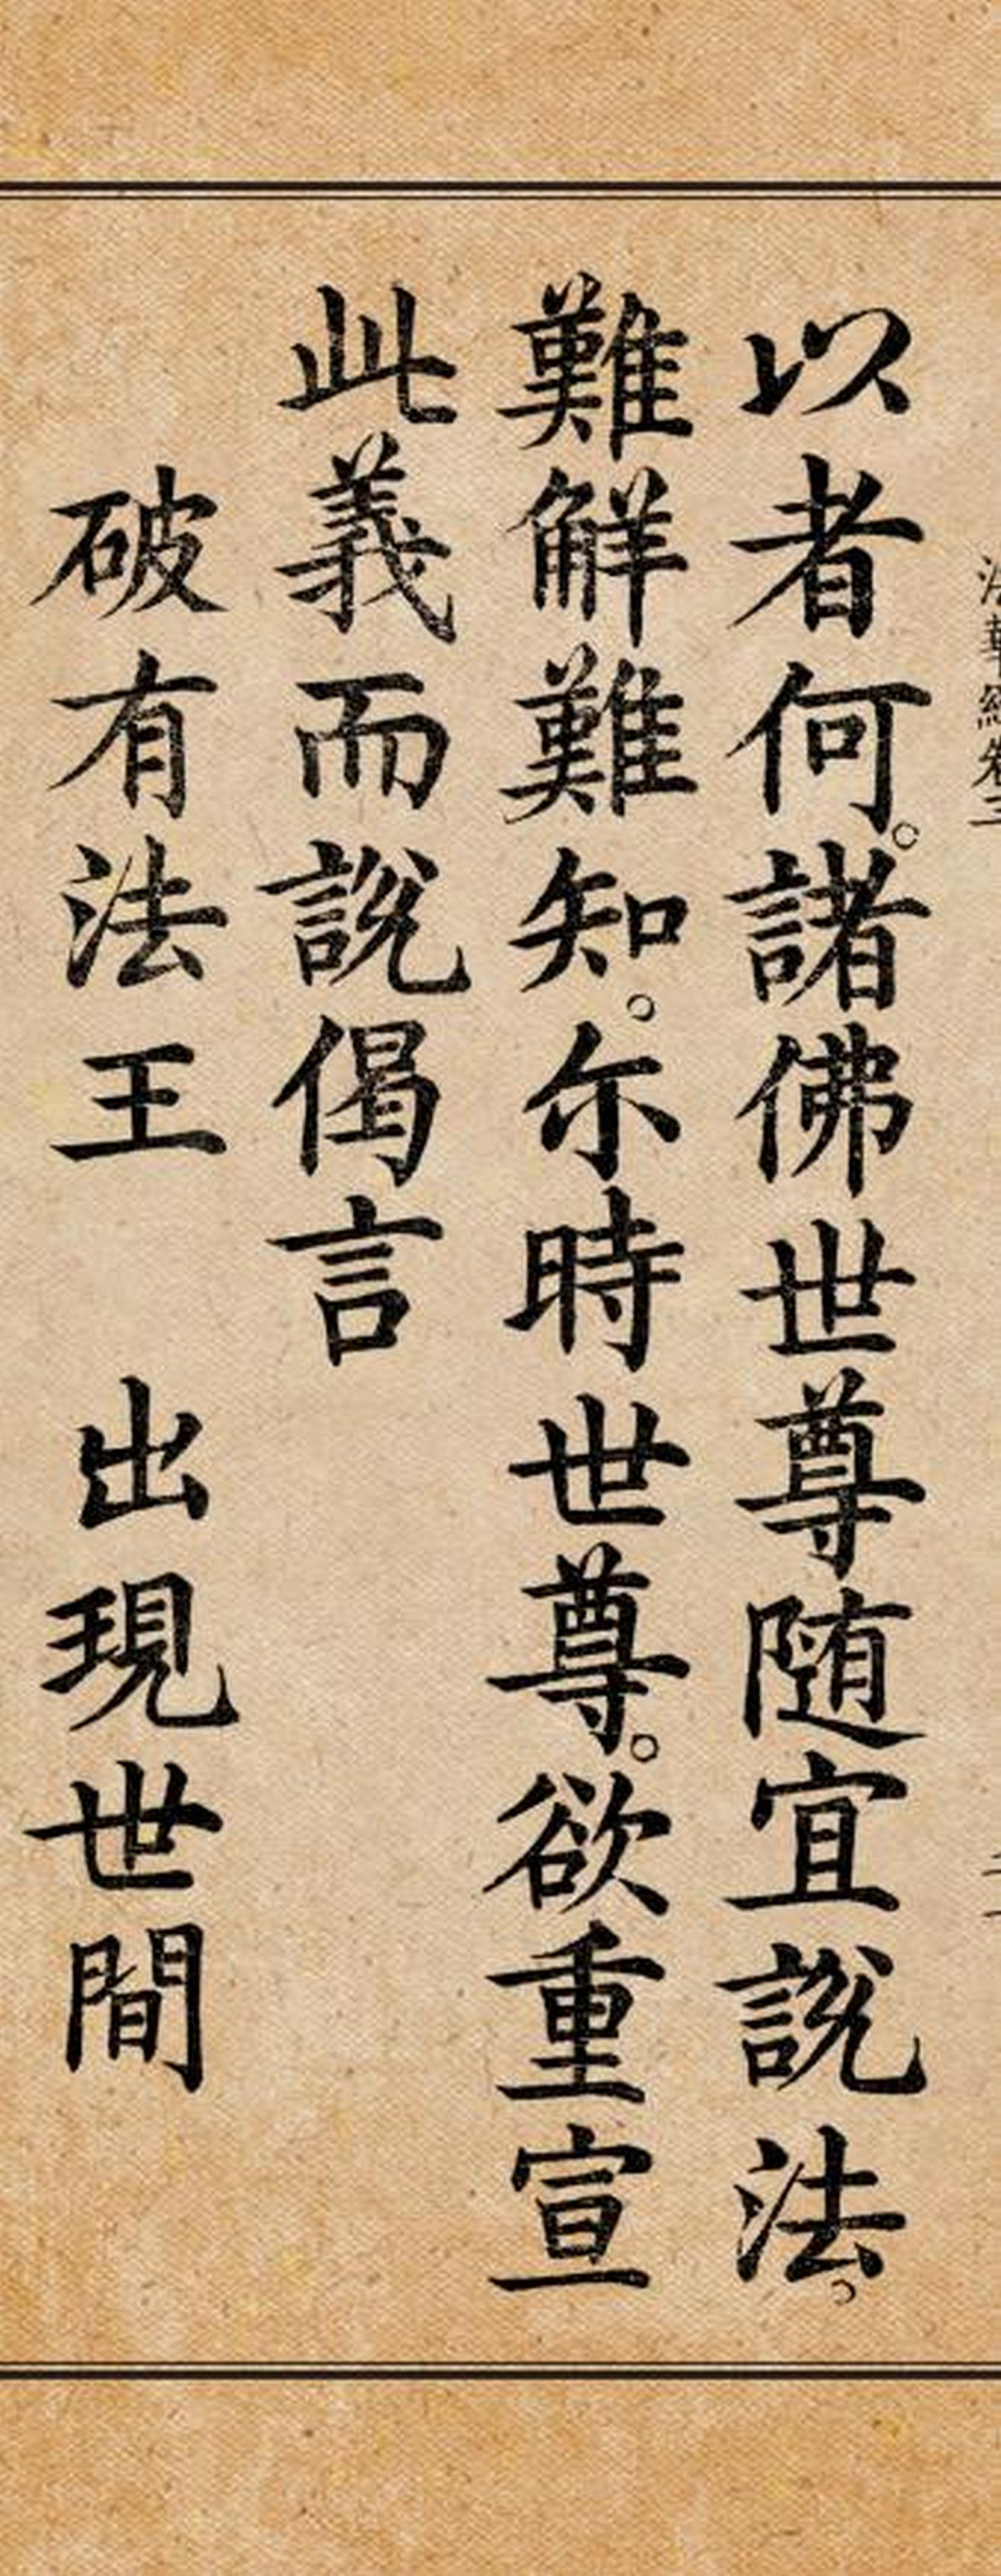 法華經卷三
以者何。諸佛世尊随宜説法。
難解難知。尓時世尊。欲重宣
此義而説偈言
破有法王 出現世間